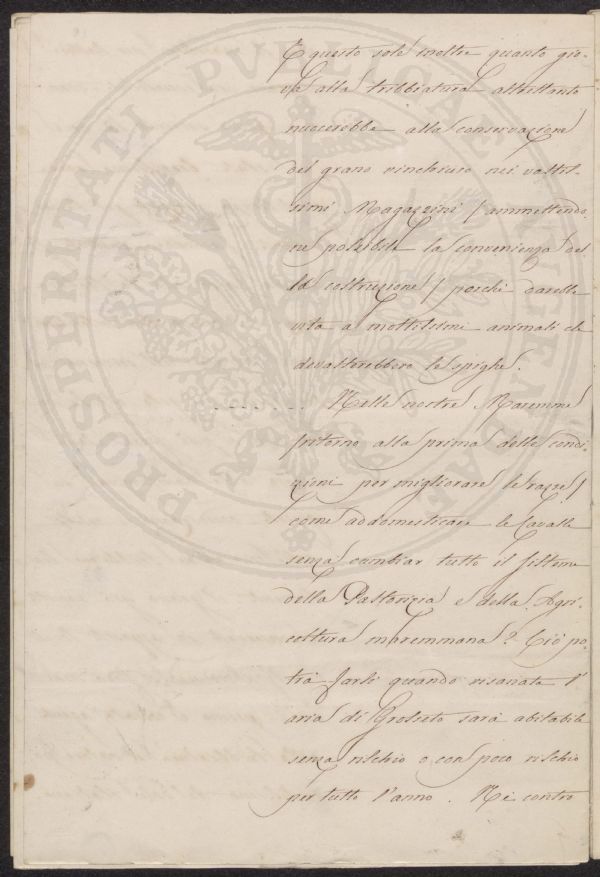 E questo sole inoltre quanto gio-
va alla tribbiatura altrettanto
nuocerebbe alla conservazione
del grano rinchiuso nei vastis-
simi Magazzini / ammettendo
ne possibile la convenienza del
la costruzione / perchè darebbe
vita a moltissimi animali che
devasterebbero le spighe.
- - - - - - - Nelle nostre Maremme
/ ritorno alla prima delle condi-
zioni per migliorare le razze /
come addomesticare le Cavalle
senza cambiar tutto il sistema
della Pastorizia e della Agri-
coltura maremmana? Ciò po-
trà farsi quando risanata l'
aria di Grosseto sarà abitabile
senza rischio o con poco rischio
per tutto l'anno. Nè contro
PROSPERITATI PVBLICAE